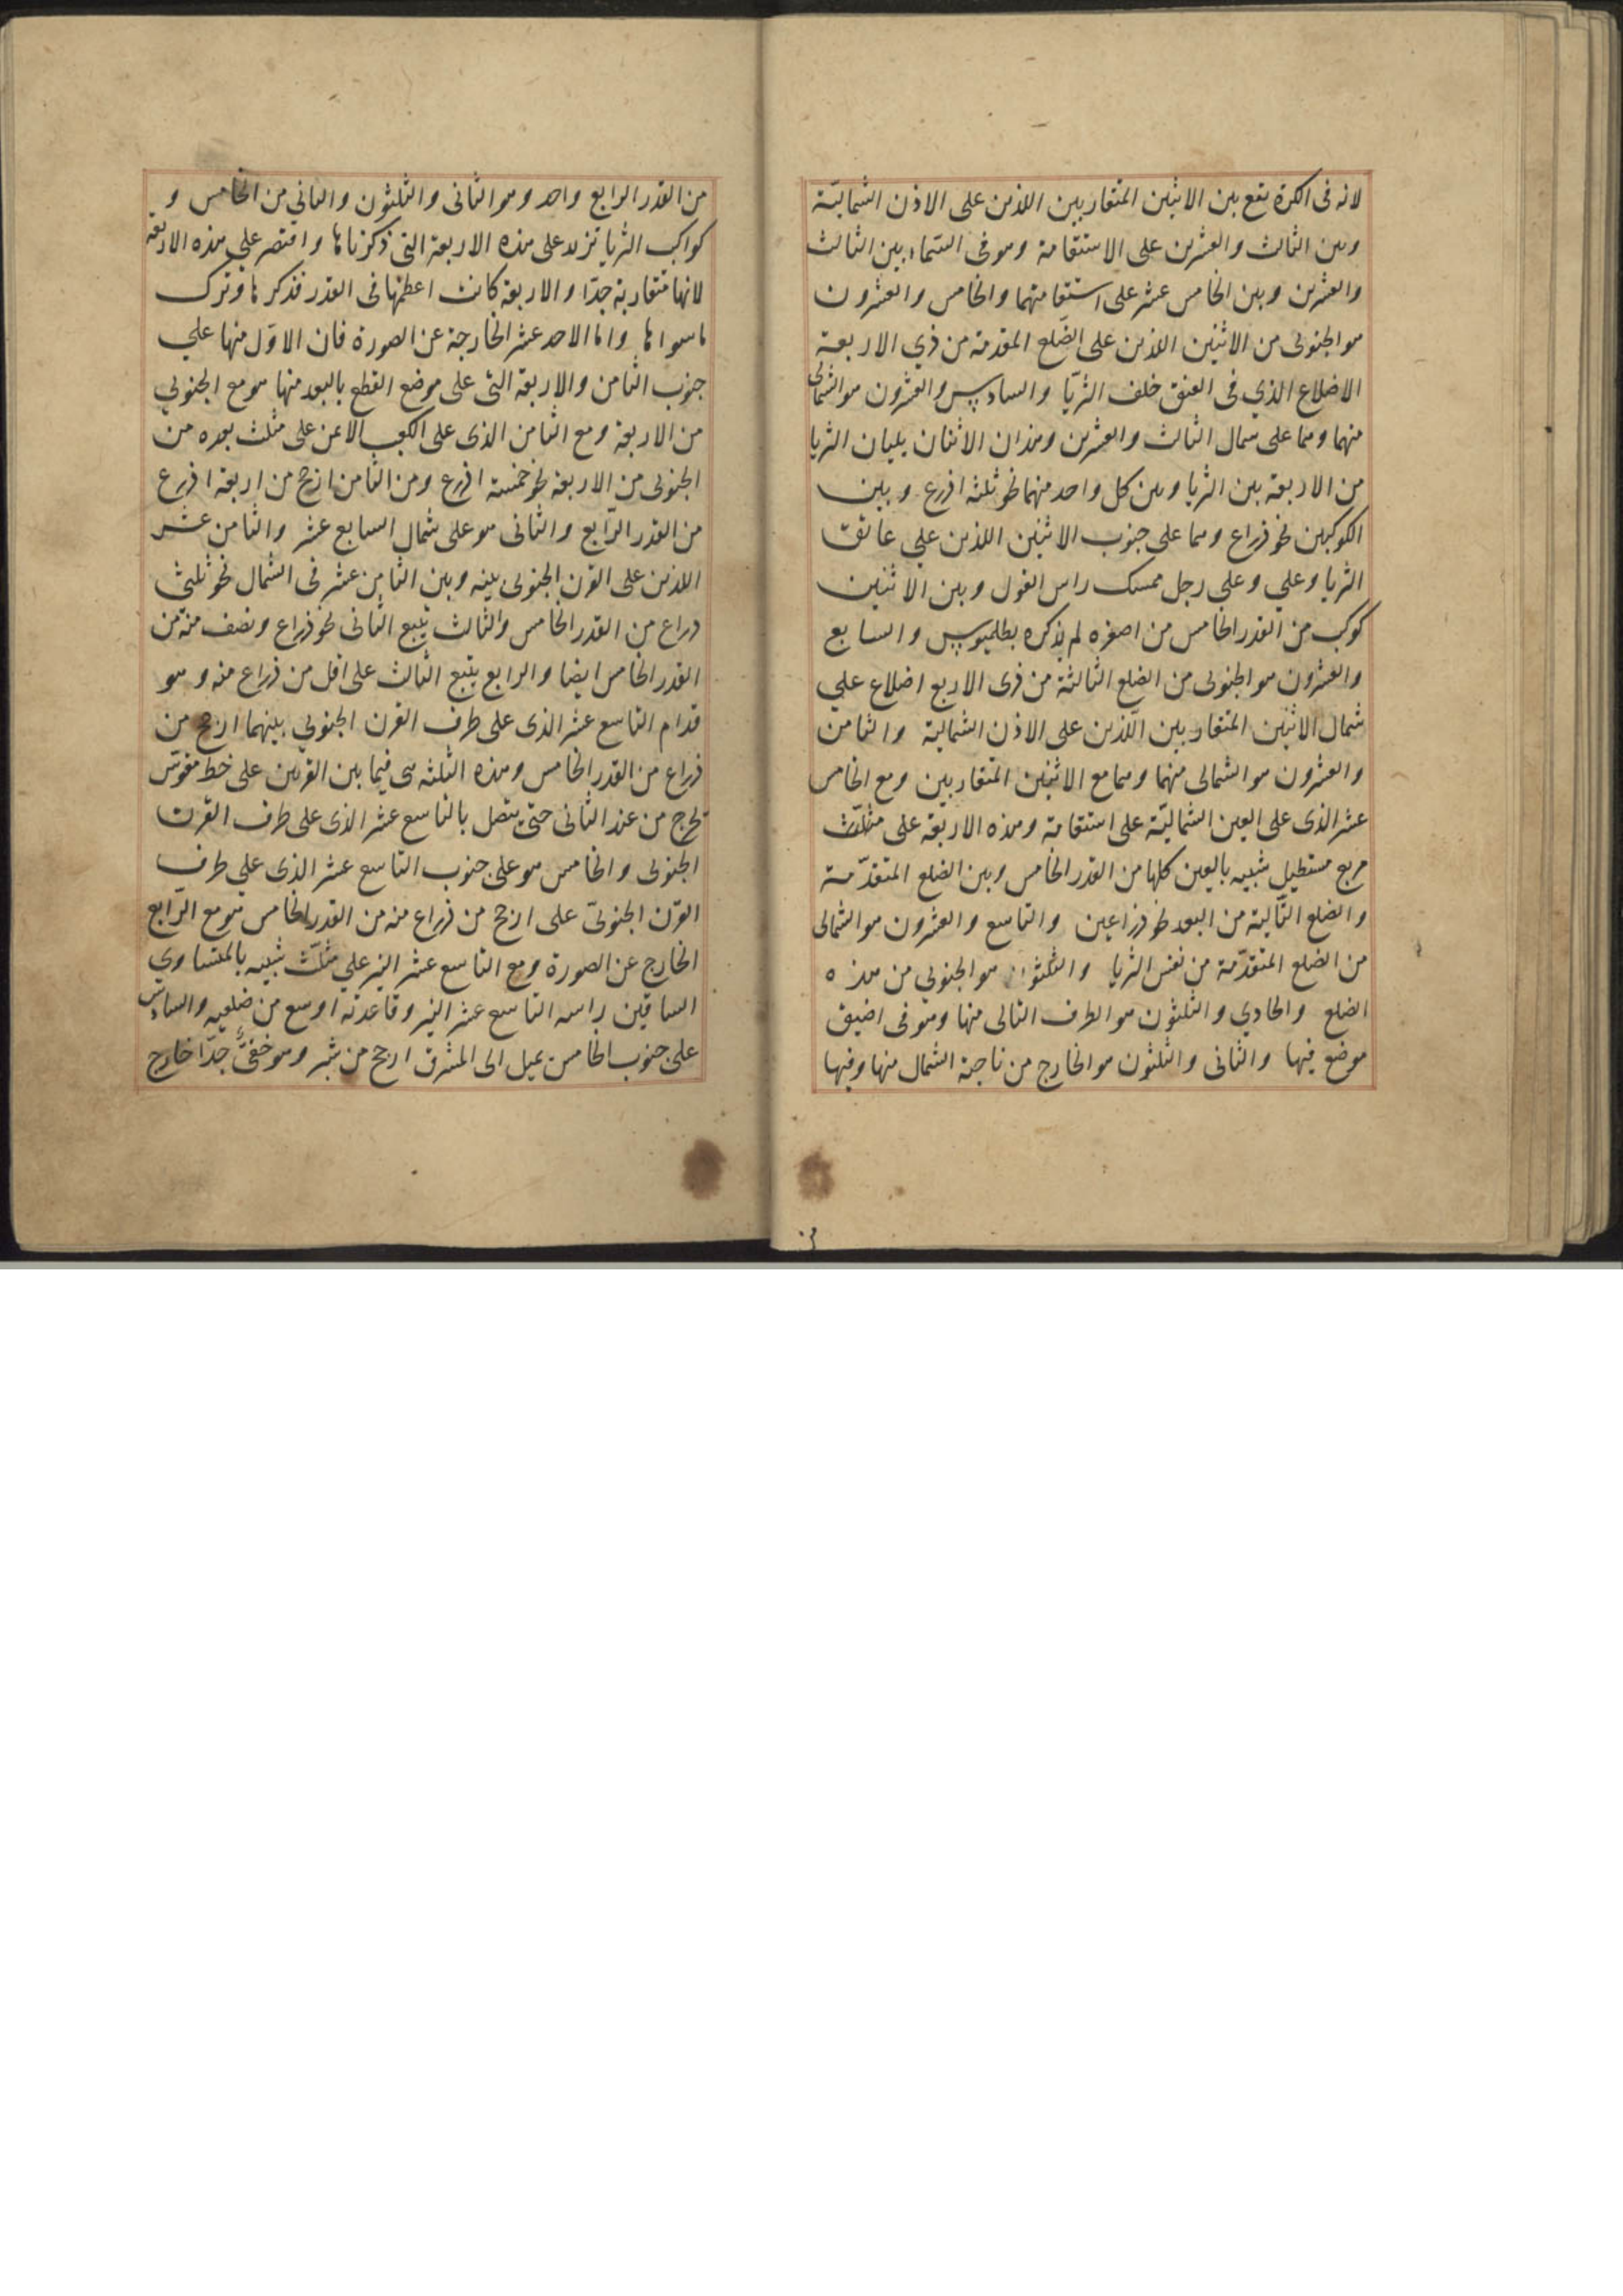 لانه فى الكرة يقع بين الاثنين المتقاربين اللذين على الاذن الشماليّة
وبين الثالث والعشرين على الاستقامة وهو فى السّماء بين الثالث
والعشرين وبين الخامس عشر على استقامتهما والخامس والعشرون
هو الجنوبى من الاثنين اللذين على الضّلع المقدمة من ذي الاربعة
الاضلاع الذي فى العنق خلف الثريّا والسادس والعشرون هو الشمالى
منهما وهما على شمال الثالث والعشرين وهذان الاثنان يليان الثريا
من الاربعة بين الثريا وبين كل واحد منهما نحو ثلثة اذرع وبين
الكوكبين نحو ذراع وهما على جنوب الاثنين اللذين علي عاتق
الثريا وعلي وعلى رجل ممسك راس الغول وبين الاثنين
كوكب من القدر الخامس من اصغره لم يذكره بطلميوس والسابع
والعشرون هو الجنوبى من الضلع الثالثة من ذى الاربع اضلاع علي
شمال الاثنين المتقاربين اللّذين على الاذن الشمالية والثامن
والعشرون هو الشمالى منهما وهما مع الاثنين المتقاربين ومع الخامس
عشر الذى على العين الشماليّة على استقامة وهذه الاربعة على مثلّث
مربع مستطيل شبيه بالعين كلها من القدر الخامس وبين الضلع المتقدّمة
والضلع التّالية من البعد نحو ذراعين والتاسع والعشرون هو الشمالى
من الضلع المتقدّمة من نفس الثريا والثلثون هو الجنوبي من هذه
الضلع والحادي والثلثون هو الطرف التالى منها وهو فى اضيق
موضع فيها والثانى والثلثون هو الخارج من ناحية الشمال منها وفيها
من القدر الرابع واحد وهو الثانى والثلثون والباقي من الخامس و
كواكب الثريا تزيد على هذه الاربعة التى ذكرناها واقتصر علي هذه الاربعة
لانها متقاربة جدّا والاربعة كانت اعظمها فى القدر فذكرها وترك
ما سواها واما الاحد عشر الخارجة عن الصورة فان الاوّل منها علي
جنوب الثامن والاربعة التى على موضع القطع بالبعد منها هو مع الجنوبي
من الاربعة ومع الثامن الذى على الكعب الايمن على مثلث بعده من
الجنوبى من الاربعة نحو خمسة اذرع ومن الثامن ارجح من اربعة اذرع
من القدر الرّابع والثانى هو على شمال السابع عشر والثامن عشر
اللذين على القرن الجنوبى بينه وبين الثامن عشر فى الشمال نحو ثلثى
ذراع من القدر الخامس والثالث يتبع الثانى نحو ذراع ونصف منه من
القدر الخامس ايضا والرابع يتبع الثالث على اقل من ذراع منه وهو
قدام التاسع عشر الذى على طرف القرن الجنوبي بينهما ارجح من
ذراع من القدر الخامس وهذه الثلثه هى فيما بين القرنين على خط مقوّس
يخرج من عند الثانى حتى يتصل بالتاسع عشر الذى على طرف القرن
الجنوبى والخامس هو على جنوب التاسع عشر الذى علي طرف
القرن الجنوبىّ على ارجح من ذراع منه من القدر الخامس هو مع الرّابع
الخارج عن الصورة ومع التاسع عشر النير علي مثلّث شبيه بالمتساوي
الساقين راسه التاسع عشر النير وقاعدته اوسع من ضلعيه والسادس
على جنوب الخامس يميل الى المشرق ارجح من شبر وهو خفىّ جدّا خارج